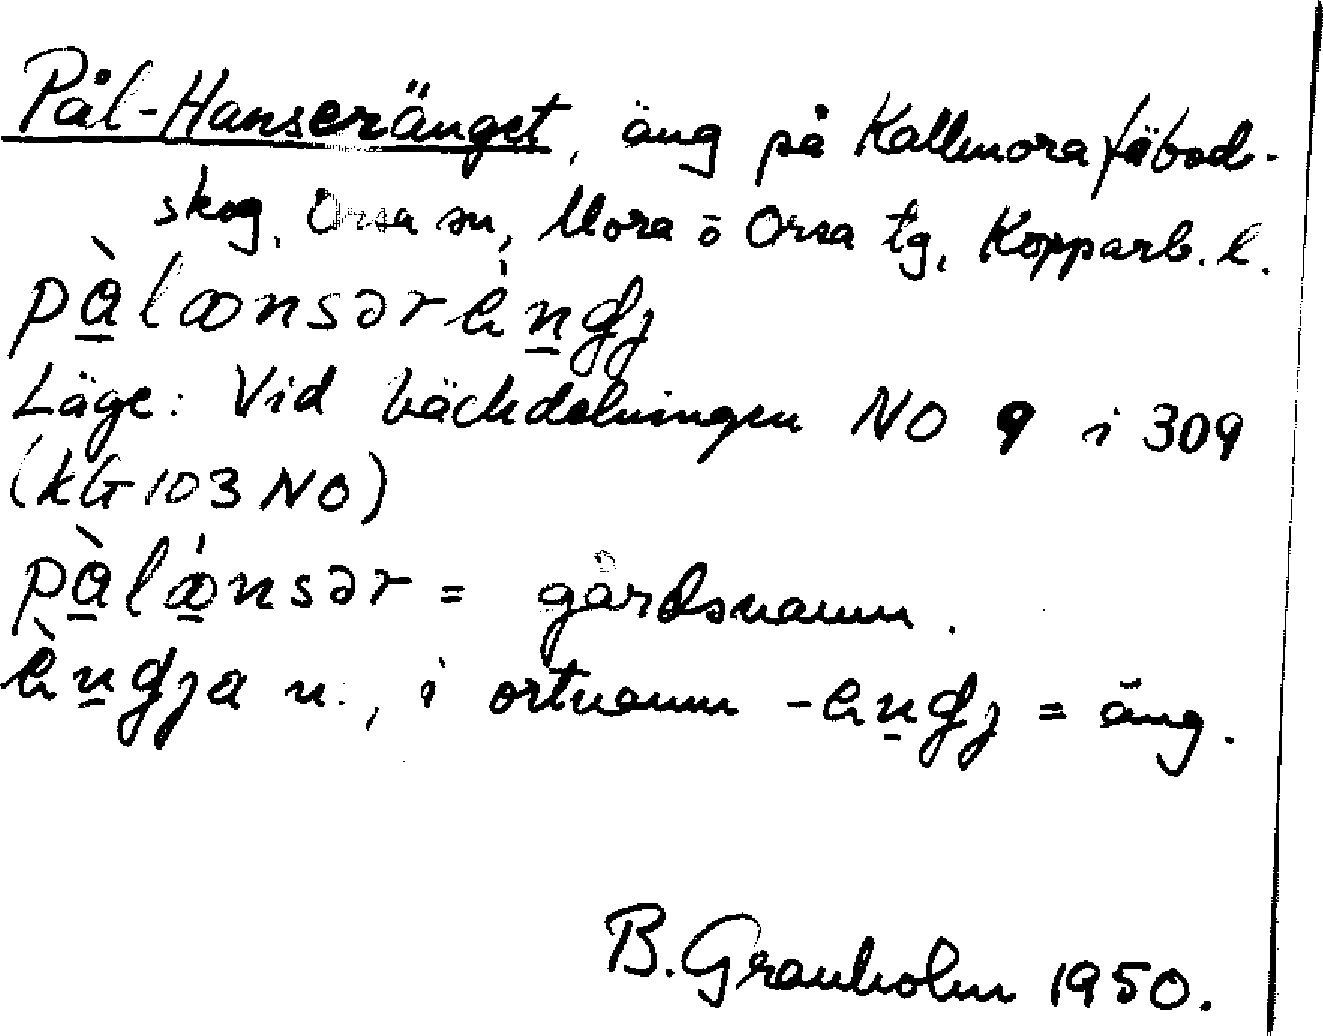 Pål-Hanseränget, äng på Kallmora fäbod-
skog, Orsa sn, Mora o Orsa tg, Kopparb. l.
Läge: Vid bäckdelningen NO 9 i 309
(kG 103 NO)
= gårdsnamn.
n., i ortnamn = äng.
B. Granholm 1950.